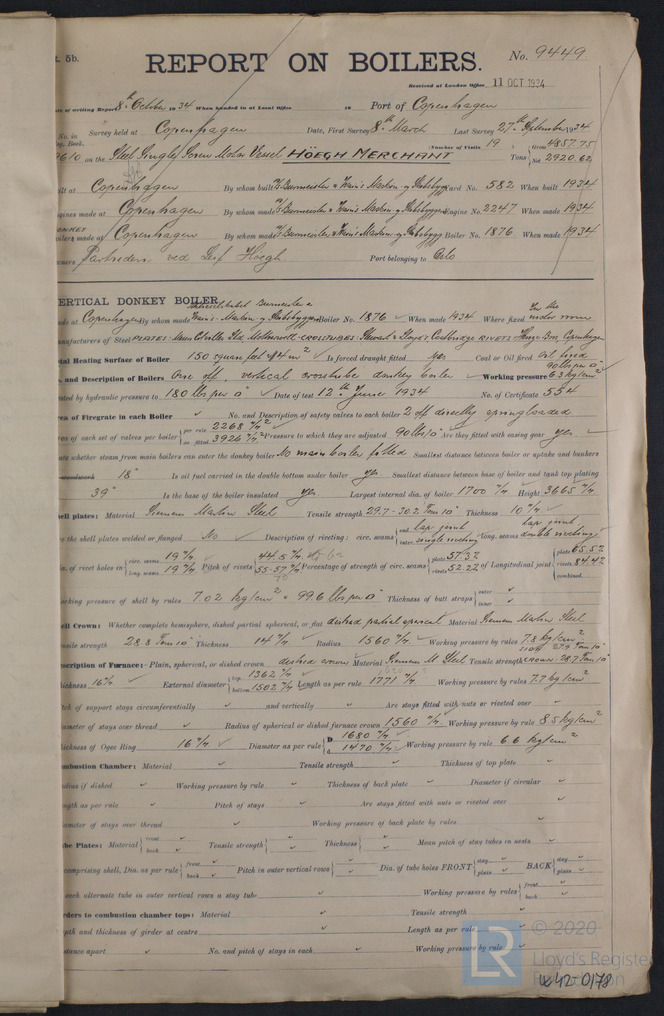 t. 5b.
REPORT ON BOILERS.
No. 9449
Received at London Office 11 OCT 1934
ate of writing Report 8th October 1934 When handed in at Local Office 19 Port of Copenhagen
No. in Survey held at Copenhagen Date, First Survey 8th March Last Survey 27th September 1934
eg. Book. Number of Visits 19 Gross 4857.75
9610 on the Steel Single Screw Motor Vessel HÖEGH MERCHANT Tons Net 2920.62
ilt at Copenhagen By whom built Burmeister & Wain's Maskin- og Skibsbyggeri Yard No. 582 When built 1934
ngines made at Copenhagen By whom made Burmeister & Wain's Maskin- og Skibsbyggeri Engine No. 2247 When made 1934
oilers made at Copenhagen By whom made Burmeister & Wain's Maskin- og Skibsbygg Boiler No. 1876 When made 1934
wners Partrederi ved Leif Höegh Port belonging to Oslo
VERTICAL DONKEY BOILER.
Aktieselskabet Burmeister &
ade at Copenhagen By whom made Wain's Maskin- og Skibsbyggeri Boiler No. 1876 When made 1934 Where fixed In the motor room
anufacturers of Steel PLATES: CROSSTUBES: Stewart & Lloyds, Coatbridge RIVETS: Copenhagen
otal Heating Surface of Boiler 150 square feet = 14 m² Is forced draught fitted yes Coal or Oil fired Oil fired
o. and Description of Boilers One off, vertical crosstube donkey boiler Working pressure 90 lbs per □" 6.3 kg/cm²
ested by hydraulic pressure to 180 lbs per □" Date of test 12th June 1934 No. of Certificate 554
rea of Firegrate in each Boiler No. and Description of safety valves to each boiler 2 off directly spring loaded
rea of each set of valves per boiler per rule 2268 m/m² as fitted 3926 m/m² Pressure to which they are adjusted 90 lbs/□" Are they fitted with easing gear yes
ate whether steam from main boilers can enter the donkey boiler No main boiler fitted Smallest distance between boiler or uptake and bunkers
woodwork 18" Is oil fuel carried in the double bottom under boiler yes Smallest distance between base of boiler and tank top plating
39" Is the base of the boiler insulated yes Largest internal dia. of boiler 1700 m/m Height 3665 m/m
hell plates: Material Siemens Martin Steel Tensile strength 29.7-30.2 Tons □" Thickness 10 m/m
re the shell plates welded or flanged No Description of riveting: circ. seams end lap joint inter. single riveting long. seams lap joint double riveting
ia. of rivet holes in circ. seams 19 m/m long. seams 19 m/m Pitch of rivets 44.5 m/m 55-57 m/m Percentage of strength of circ. seams plate 57.3% rivets 52.2% of Longitudinal joint plate 65.5% rivets 84.4% combined
orking pressure of shell by rules 7.02 kg/cm² = 99.6 lbs per □" Thickness of butt straps outer inner
hell Crown: Whether complete hemisphere, dished partial spherical, or flat dished partial spherical Material Siemens Martin Steel
ensile strength 28.8 Tons □" Thickness 14 m/m Radius 1560 m/m Working pressure by rules 7.8 kg/cm²
escription of Furnace: Plain, spherical, or dished crown dished crown Material Siemens M. Steel Tensile strength 27.9 Tons □" crown 28.7 Tons □"
hickness 16 m/m External diameter top 1362 m/m bottom 1502 m/m Length as per rule 1771 m/m Working pressure by rules 7.7 kg/cm²
itch of support stays circumferentially and vertically Are stays fitted with nuts or riveted over
iameter of stays over thread Radius of spherical or dished furnace crown 1560 m/m Working pressure by rule 8.5 kg/cm²
hickness of Ogee Ring 16 m/m Diameter as per rule D 1680 m/m d 1470 m/m Working pressure by rule 6.6 kg/cm²
ombustion Chamber: Material Tensile strength Thickness of top plate
adius if dished Working pressure by rule Thickness of back plate Diameter if circular
ength as per rule Pitch of stays Are stays fitted with nuts or riveted over
iameter of stays over thread Working pressure of back plate by rules
ube Plates: Material front back Tensile strength Thickness Mean pitch of stay tubes in nests
comprising shell, Dia. as per rule front back Pitch in outer vertical rows Dia. of tube holes FRONT stay plain BACK stay plain
each alternate tube in outer vertical rows a stay tube Working pressure by rules front back
irders to combustion chamber tops: Material Tensile strength
epth and thickness of girder at centre Length as per rule
istance apart No. and pitch of stays in each Working pressure by rule
LR © 2020
Lloyd's Register
Foundation
W42-0178